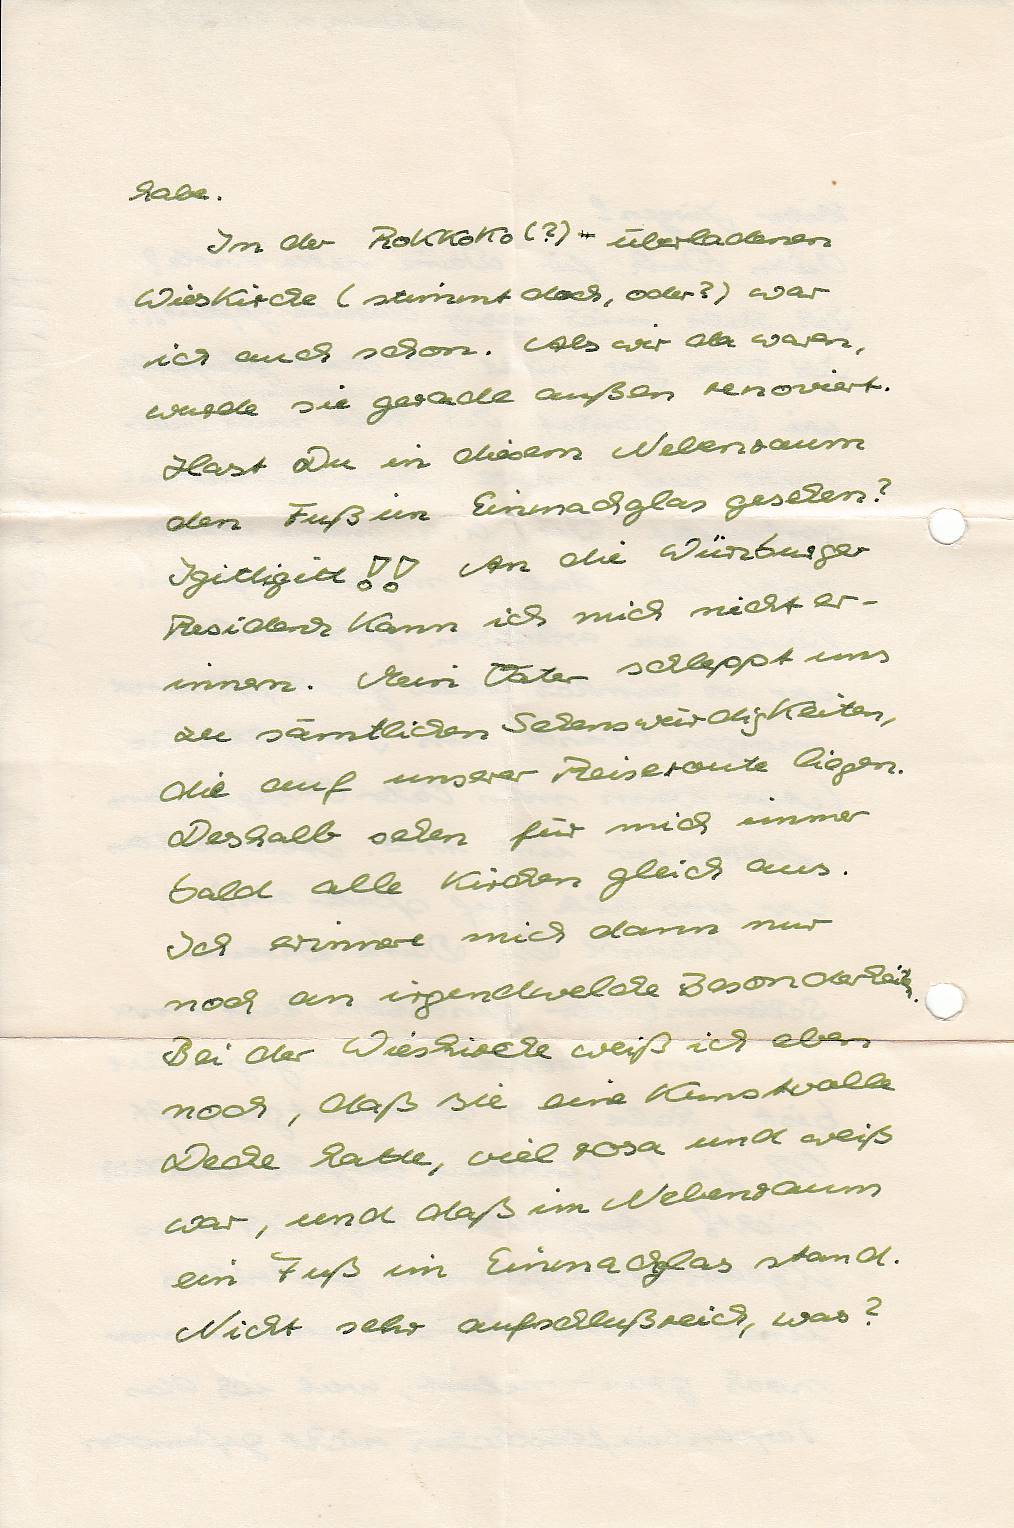 habe.
In der Rokkoko(?)-überladenen
Wieskirche (stimmt doch, oder?) war
ich auch schon. Als wir da waren,
wurde sie gerade außen renoviert.
Hast Du in diesem Nebenraum
den Fuß im Einmachglas gesehen?
Igittigitt!! An die Würzburger
Residenz kann ich mich nicht er-
innern. Mein Vater schleppt uns
zu sämtlichen Sehenswürdigkeiten,
die auf unserer Reiseroute liegen.
Deshalb sehen für mich immer
bald alle Kirchen gleich aus.
Ich erinnere mich dann nur
noch an irgendwelche Besonderheiten.
Bei der Wieskirche weiß ich eben
noch, daß sie eine kunstvolle
Decke hatte, viel rosa und weiß
war, und daß im Nebenraum
ein Fuß im Einmachglas stand.
Nicht sehr aufschlußreich, was?